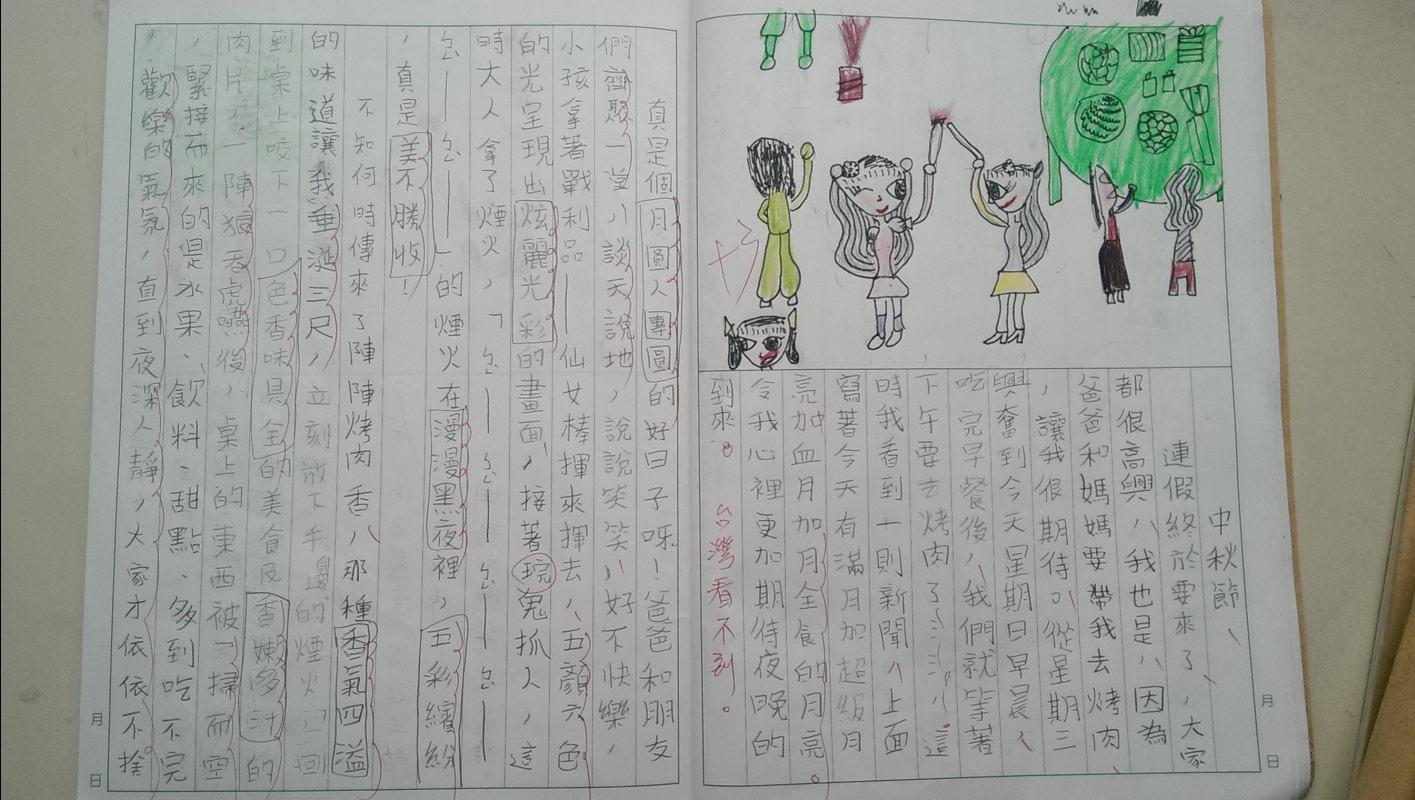 中秋節
連假終於要來了，大家
都很高興，我也是，因為
爸爸和媽媽要帶我去烤肉
，讓我很期待，從星期三
興奮到今天星期日早晨，
吃完早餐後，我們就等著
下午要去烤肉了，這
時我看到一則新聞，上面
寫著今天有滿月加超級月
亮加血月加月全食的月亮。
令我心裡更加期待夜晚的
到來。
台灣看不到。
真是個月圓人團圓的好日子呀！爸爸和朋友
們齊聚一堂，談天說地，說說笑笑，好不快樂，
小孩拿著戰利品—仙女棒揮來揮去，五顏六色
的光呈現出炫麗光彩的畫面，接著玩鬼抓人，這
時大人拿了煙火，「ㄠ—ㄠ—ㄠ—
ㄠ—ㄠ—」的煙火在漫漫黑夜裡，五彩繽紛
，真是美不勝收！
不知何時傳來了陣陣烤肉香，那種香氣四溢
的味道讓我垂涎三尺，立刻放下手邊的煙火，回
到桌上咬下一口色香味具全的美食及香嫩多汁的
肉片，一陣狼吞虎嚥後，桌上的東西被一掃而空
，緊接而來的是水果、飲料、甜點、多到吃不完
，歡樂的氣氛，直到夜深人靜，大家才依依不捨
月
日
月
日